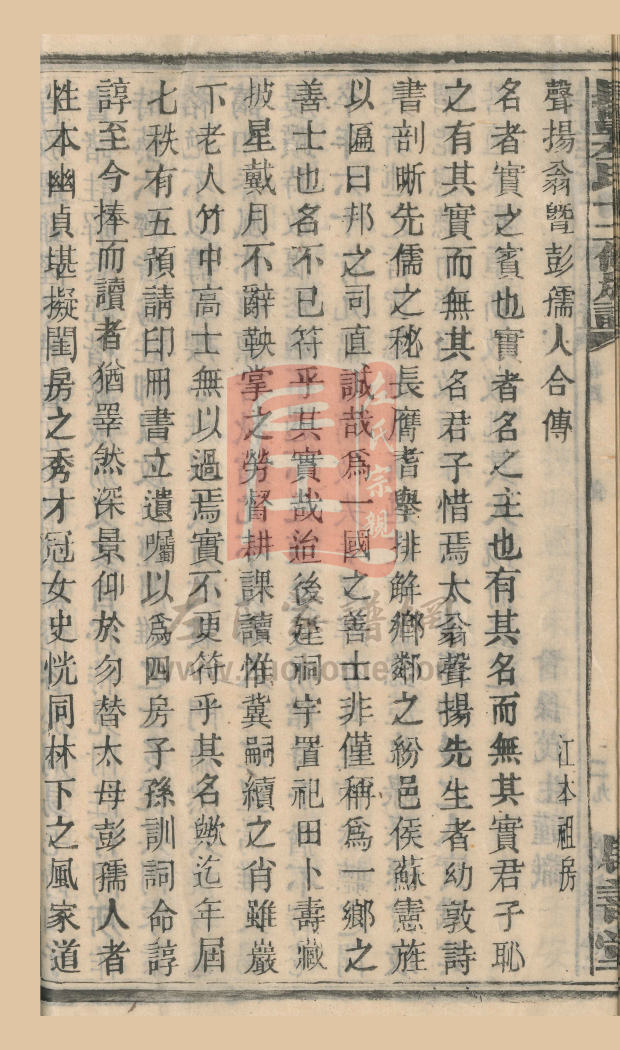 聲揚翁曁彭儒人合傳
江本祖房
名者實之賓也實者名之主也有其名而無其實君子恥
之有其實而無其名君子惜焉太翁聲揚先生者幼敦詩
書剖晰先儒之秘長膺耆舉排解鄉鄰之紛邑侯蘇憲旌
以匾曰邦之司直誠哉爲一國之善士非僅稱爲一鄉之
善士也名不已符乎其實哉迨後建祠宇置祀田卜壽藏
披星戴月不辭鞅掌之勞督耕課讀惟冀嗣續之肖雖嚴
下老人竹中高士無以過焉實不更符乎其名歟迄年屆
七秩有五預請印冊書立遺囑以爲四房子孫訓詞命諄
諄至今捧而讀者猶睪然深景仰於勿替太母彭孺人者
性本幽貞堪擬閨房之秀才冠女史恍同林下之風家道
左氏宗親
www.zuohome.com